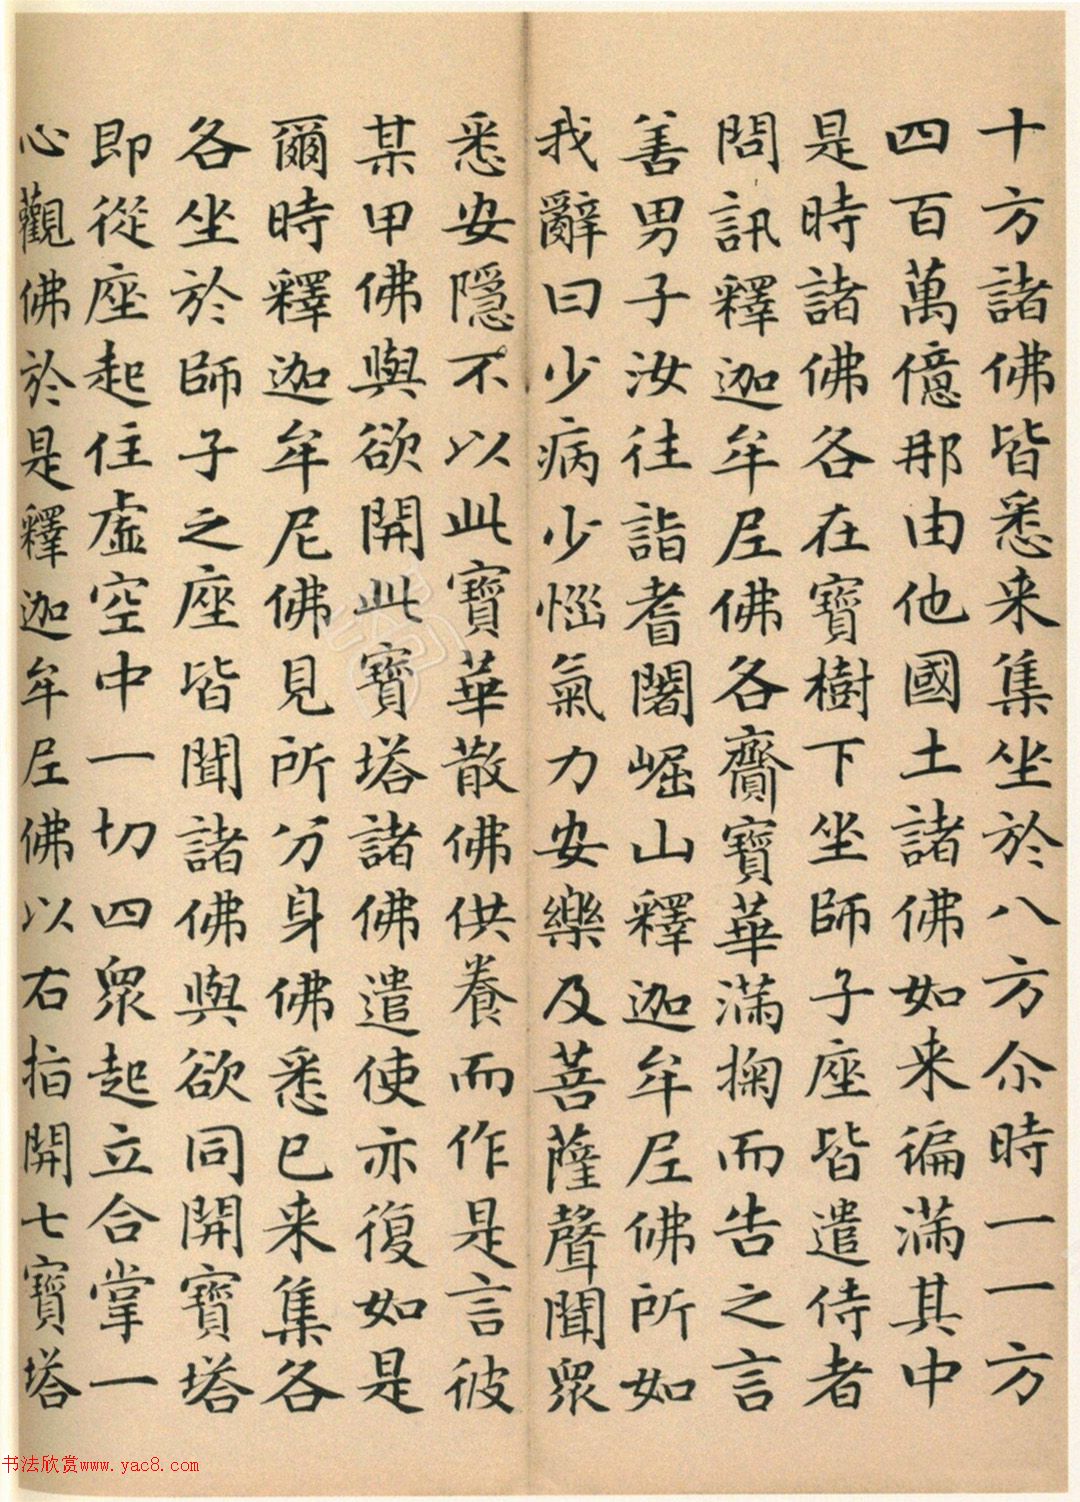 十方諸佛皆悉来集坐於八方尒時一一方
四百萬億那由他國土諸佛如来徧滿其中
是時諸佛各在寶樹下坐師子座皆遣侍者
問訊釋迦牟尼佛各齎寶華滿掬而告之言
善男子汝往詣耆闍崛山釋迦牟尼佛所如
我辭曰少病少惱氣力安樂及菩薩聲聞眾
悉安隱不以此寶華散佛供養而作是言彼
某甲佛與欲開此寶塔諸佛遣使亦復如是
爾時釋迦牟尼佛見所分身佛悉已来集各
各坐於師子之座皆聞諸佛與欲同開寶塔
即從座起住虛空中一切四眾起立合掌一
心觀佛於是釋迦牟尼佛以右指開七寶塔
书法欣赏www.yac8.com